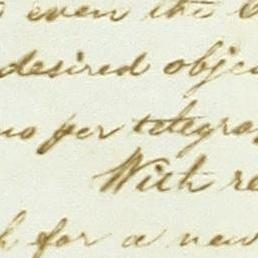 even the
desired objec
per telegra
With re
for a new